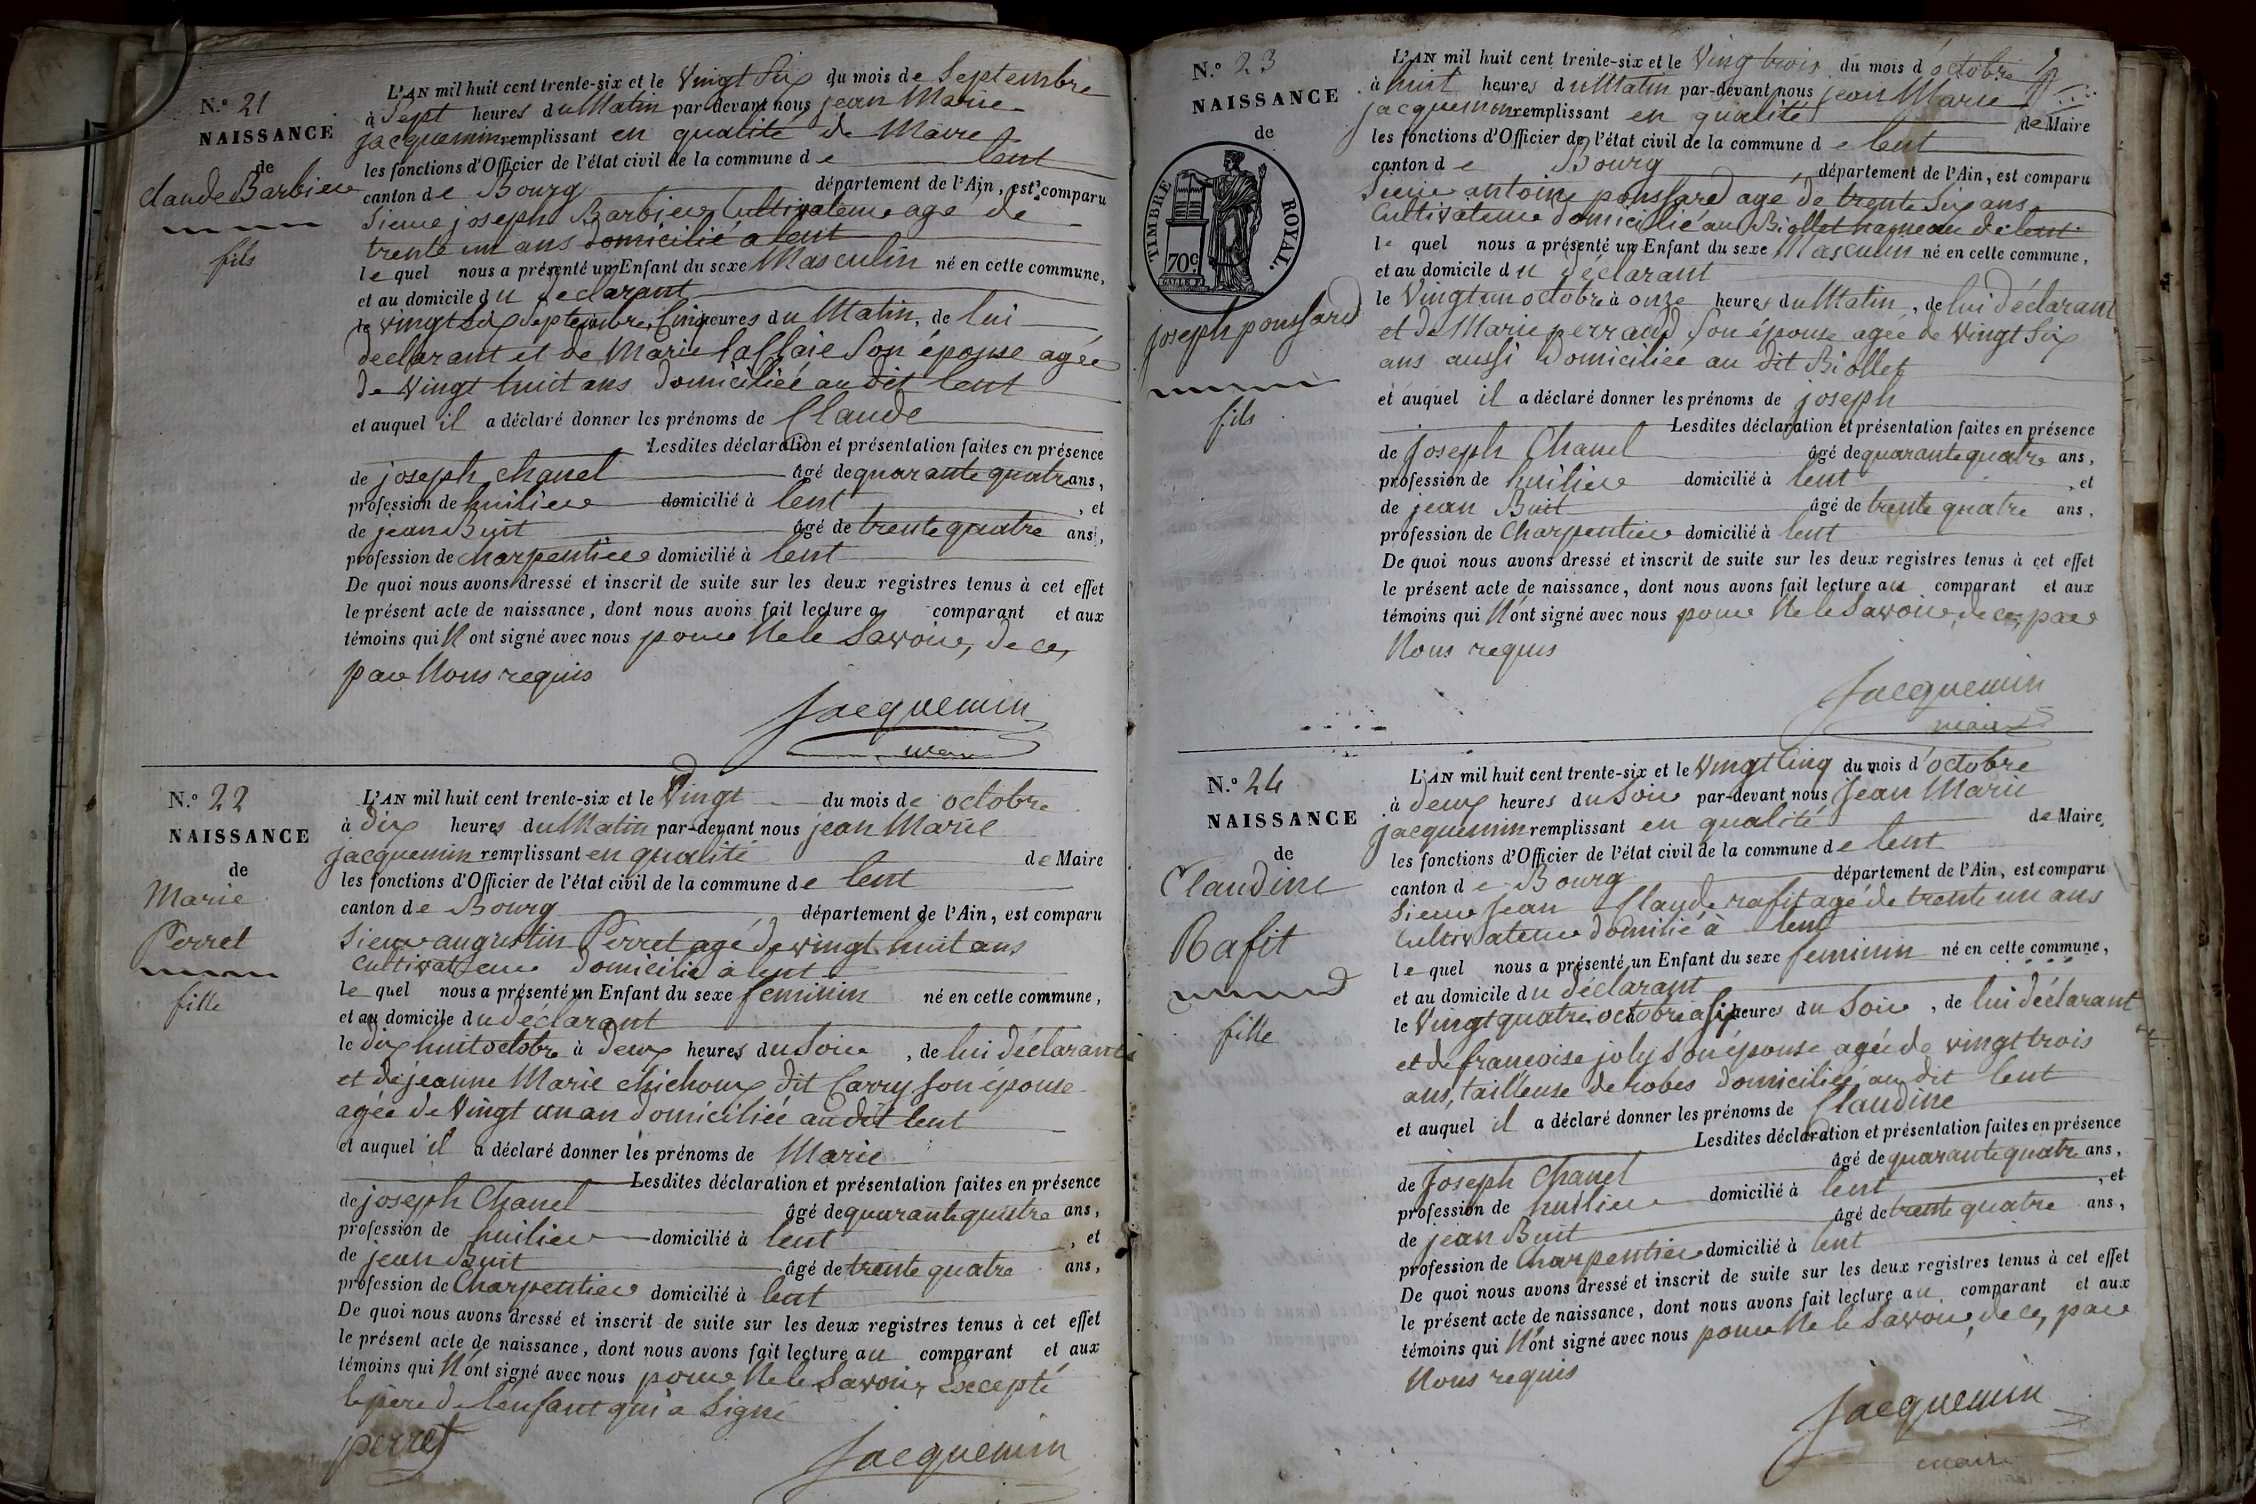 N.º 21
NAISSANCE
de
Claude Barbier
fils
L'AN mil huit cent trente-six et le Vingt Six du mois de Septembre
à Sept heures du Matin par-devant nous jean Marie
jacquemin remplissant en qualité de Maire
les fonctions d'Officier de l'état civil de la commune de lent
canton de Bourg département de l'Ain, est comparu
Sieur joseph Barbier Cultivateur agé de
trente un ans domicilié a lent
le quel nous a présenté un Enfant du sexe Masculin né en cette commune,
et au domicile du declarant
le vingt Six Septembre, Cinq heures du Matin, de lui
declarant et de Marie Son épouse agée
de Vingt huit ans domiciliée au dit lent
et auquel il a déclaré donner les prénoms de Claude
Lesdites déclaration et présentation faites en présence
de joseph Chanel âgé de quarante quatre ans,
profession de huilier domicilié à lent, et
de jean Buit âgé de trente quatre ans,
profession de Charpentier domicilié à lent
De quoi nous avons dressé et inscrit de suite sur les deux registres tenus à cet effet
le présent acte de naissance, dont nous avons fait lecture au comparant et aux
témoins qui N'ont signé avec nous pour Ne le Savoir, de ce,
par Nous requis
Jacquemin
maire
N.º 22
NAISSANCE
de
Marie
Perret
fille
L'AN mil huit cent trente-six et le Vingt du mois de octobre
à dix heures du Matin par-devant nous jean Marie
jacquemin remplissant en qualité de Maire
les fonctions d'Officier de l'état civil de la commune de lent
canton de Bourg département de l'Ain, est comparu
Sieur augustin Perret agé de vingt huit ans
Cultivateur domicilié a lent
le quel nous a présenté un Enfant du sexe feminin né en cette commune,
et au domicile du déclarant
le dix huit octobre à deux heures du Soir, de lui déclarant
et de jeanne Marie chichoux dit Carry Son épouse
agée de Vingt un an domiciliée au dit lent
et auquel il a déclaré donner les prénoms de Marie
Lesdites déclaration et présentation faites en présence
de joseph Chanel âgé de quarante quatre ans,
profession de huilier domicilié à lent, et
de jean Buit âgé de trente quatre ans,
profession de Charpentier domicilié à lent
De quoi nous avons dressé et inscrit de suite sur les deux registres tenus à cet effet
le présent acte de naissance, dont nous avons fait lecture au comparant et aux
témoins qui N'ont signé avec nous pour Ne le Savoir, Excepté
le père de l'enfant qui a Signé
perret
Jacquemin
N.º 23
NAISSANCE
de
TIMBRE ROYAL.
70c
joseph poussard
fils
L'AN mil huit cent trente-six et le Vingt trois du mois d'octobre
à huit heures du Matin par-devant nous jean Marie
jacquemin remplissant en qualité de Maire
les fonctions d'Officier de l'état civil de la commune de lent
canton de Bourg département de l'Ain, est comparu
Sieur antoine poussard agé de trente Six ans
Cultivateur domicilié au Biollet hameau de lent
le quel nous a présenté un Enfant du sexe Masculin né en cette commune,
et au domicile du déclarant
le Vingt un octobre à onze heures du Matin, de lui déclarant
et de Marie perraud Son épouse agée de Vingt Six
ans aussi domiciliée au dit Biollet
et auquel il a déclaré donner les prénoms de joseph
Lesdites déclaration et présentation faites en présence
de joseph Chanel âgé de quarante quatre ans,
profession de huilier domicilié à lent, et
de jean Buit âgé de trente quatre ans,
profession de Charpentier domicilié à lent
De quoi nous avons dressé et inscrit de suite sur les deux registres tenus à cet effet
le présent acte de naissance, dont nous avons fait lecture au comparant et aux
témoins qui N'ont signé avec nous pour Ne le Savoir, de ce, par
Nous requis
Jacquemin
maire
N.º 24
NAISSANCE
de
Claudine
Rafit
fille
L'AN mil huit cent trente-six et le Vingt Cinq du mois d'octobre
à deux heures du Soir par-devant nous Jean Marie
jacquemin remplissant en qualité de Maire
les fonctions d'Officier de l'état civil de la commune de lent
canton de Bourg département de l'Ain, est comparu
Sieur Jean Claude rafit agé de trente un ans
Cultivateur domilié à lent
le quel nous a présenté un Enfant du sexe feminin né en cette commune,
et au domicile du déclarant
le Vingt quatre octobre à Six heures du Soir, de lui déclarant
et de françoise joly Son épouse agée de vingt trois
ans, tailleuse de robes domiciliée au dit lent
et auquel il a déclaré donner les prénoms de Claudine
Lesdites déclaration et présentation faites en présence
de Joseph Chanel âgé de quarante quatre ans,
profession de huilier domicilié à lent, et
de jean Buit âgé de trente quatre ans,
profession de Charpentier domicilié à lent
De quoi nous avons dressé et inscrit de suite sur les deux registres tenus à cet effet
le présent acte de naissance, dont nous avons fait lecture au comparant et aux
témoins qui N'ont signé avec nous pour Ne le Savoir, de ce, par
Nous requis
Jacquemin
maire